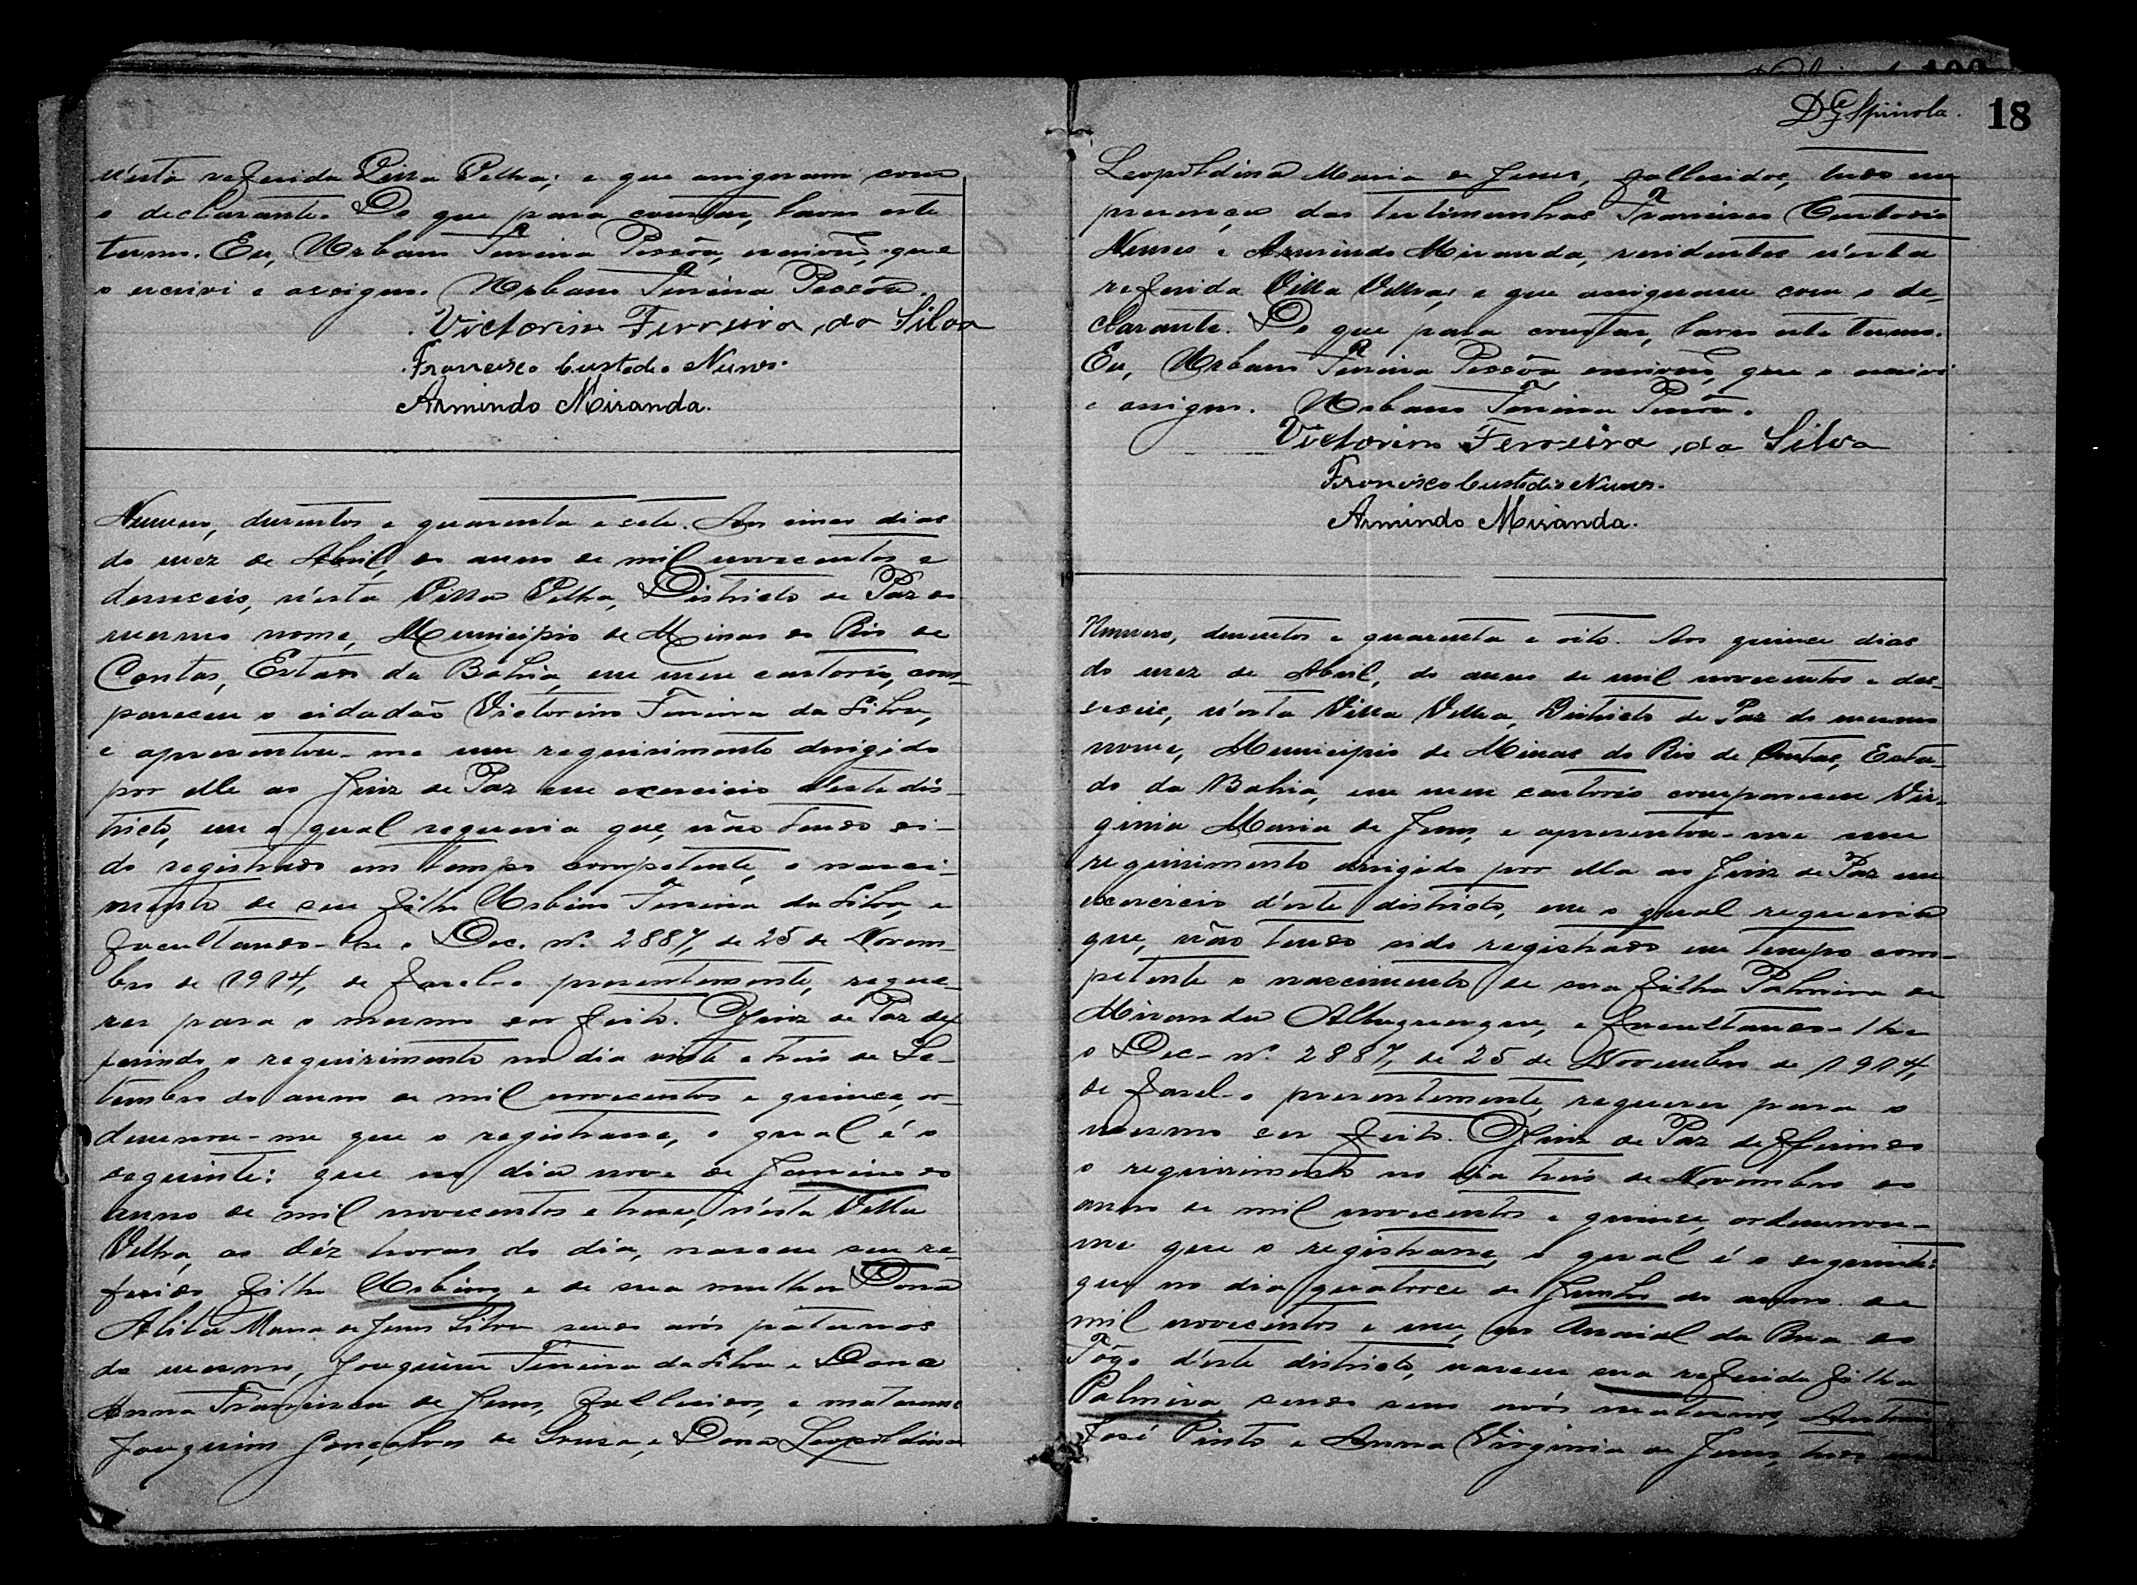 n'esta referida Villa Velha; e que assignam com
o declarante. Do que para constar, lavro este
termo. Eu, Urbano Pereira Pessôa, escrivão, que
o escrivi e assigno. Urbano Pereira Pessôa.
Victorino Ferreira da Silva
Francisco Custodio Nunes.
Armindo Miranda.
Numero, duzentos e quarenta e sete. Aos cinco dias
do mez de Abril, do anno de mil novecentos e
desesseis, n'esta Villa Velha, Districto de Paz do
mesmo nome, Municipio de Minas do Rio de
Contas, Estado da Bahia, em meu cartorio, com-
pareceu o cidadão Victorino Ferreira da Silva,
e apresentou-me um requirimento dirigido
por elle ao Juiz de Paz em exercicio deste dis-
tricto, em o qual requeria que, não tendo si-
do registrado em tempo competente, o nasci-
mento de seu filho Urbino Ferreira da Silva, e
facultando-lhe o Dec. nº 2887, de 25 de Novem-
bro de 1914, de fazel-o presentemente, reque-
rer para o mesmo ser feito. O Juiz de Paz def-
ferindo o requirimento no dia vinte e tres de Se-
tembro do anno de mil novecentos e quinze, or-
denou-me que o registrasse, o qual é o
seguinte: que no dia nove de Janeiro do
anno de mil novecentos e treze, n'esta Villa
Velha, as déz horas do dia, nasceu seu re-
ferido filho Urbino e de sua mulher Dona
Alita Maria de Jesus Silva sendo avós paternos
do mesmo, Joaquim Ferreira da Silva e Dona
Anna Francisca de Jesus, fallecidos, e maternos
Joaquim Gonçalves de Souza, e Dona Leopoldina
D G Spinola. 18
Leopoldina Maria de Jesus, fallecidos, tudo em
presença das testimunhas Francisco Custodio
Nunes e Armindo Miranda, residentes n'esta
referida Villa Velha, e que assignam com o de-
clarante. Do que para constar, lavro este termo.
Eu, Urbano Pereira Pessôa, escrivão, que o escrivi
e assigno. Urbano Pereira Pessôa.
Victorino Ferreira da Silva
Francisco Custodio Nunes.
Armindo Miranda.
Numero, duzentos e quarenta e oito. Aos quinze dias
do mez de Abril, do anno de mil novecentos e des-
esseis, n'esta Villa Velha, Districto de Paz do mesmo
nome, Municipio de Minas do Rio de Contas, Esta-
do da Bahia, em meu cartorio compareceu Vir-
ginia Maria de Jesus, e apresentou-me um
requirimento dirigido por ella ao Juiz de Paz em
exercicio d'este districto, em o qual requeria
que, não tendo sido registrado em tempo com-
petente o nascimento de sua filha Palmira de
Miranda Albuquerque, e facultando-lhe
o Dec. nº 2887, de 25 de Novembro de 1914,
de fazel-o presentemente, requerer para o
mesmo ser feito. O Juiz de Paz defferindo
o requirimento no dia tres de Novembro do
anno de mil novecentos e quinze, ordenou-
me que o registrasse, o qual é o seguinte:
que no dia quatorze de Junho do anno de
mil novecentos e um, no Arraial da Boa do
Fôgo d'este districto, nasceu sua referida filha
Palmira, sendo seus avós maternos, Antonio
José Pinto e Anna Virginia de Jesus, tudo em